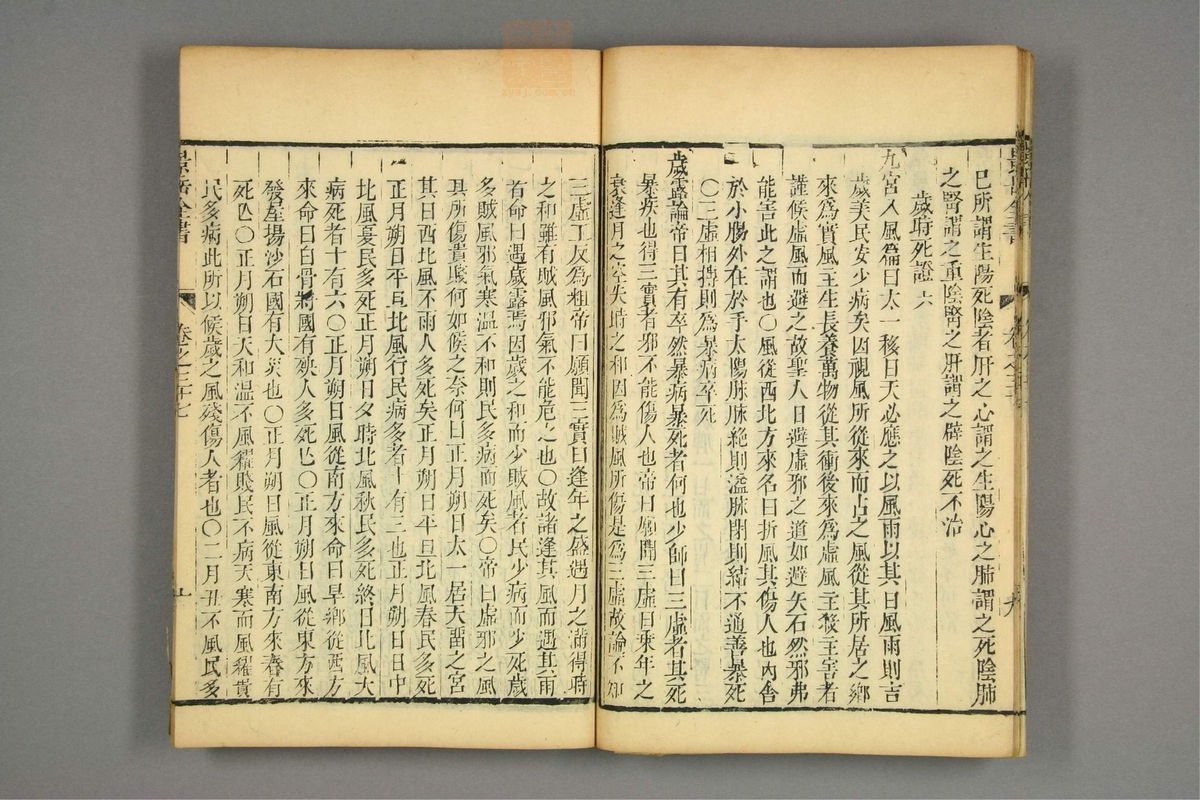 已所謂生陽死陰者肝之心謂之生陽心之肺謂之死陰肺
之腎謂之重陰腎之肝謂之辟陰死不治
歲時死證 六
九宮八風篇曰太一移日天必應之以風雨以其日風雨則吉
歲美民安少病矣因視風所從來而占之風從其所居之鄉
來為實風主生長養萬物從其衝後來為虛風主殺主害者
謹候虛風而避之故聖人日避虛邪之道如避矢石然邪弗
能害此之謂也〇風從西北方來名曰折風其傷人也內舍
於小腸外在於手太陽脉脉絕則溢脉閉則結不通善暴死
〇三虛相搏則為暴病卒死
歲露論帝曰其有卒然暴病暴死者何也少師曰三虛者其死
暴疾也得三實者邪不能傷人也帝曰願聞三虛曰乘年之
衰逢月之空失時之和因為賊風所傷是為三虛故論不知
三虛工反為粗帝曰願聞三實曰逢年之盛遇月之滿得時
之和雖有賊風邪氣不能危之也〇故諸逢其風而遇其雨
者命曰遇歲露焉因歲之和而少賊風者民少病而少死歲
多賊風邪氣寒溫不和則民多病而死矣〇帝曰虛邪之風
其所傷貴賤何如候之奈何曰正月朔日太一居天留之宮
其日西北風不雨人多死矣正月朔日平旦北風春民多死
正月朔日平旦北風行民病多者十有三也正月朔日日中
北風夏民多死正月朔日夕時北風秋民多死終日北風大
病死者十有六〇正月朔日風從南方來命曰旱鄉從西方
來命曰白骨將國有殃人多死亡〇正月朔日風從東方來
發屋揚沙石國有大災也〇正月朔日風從東南方來春有
死亡〇正月朔日天和溫不風糴賤民不病天寒而風糴貴
民多病此所以候歲之風殘傷人者也〇二月丑不風民多
景岳全書
卷之三十七
十